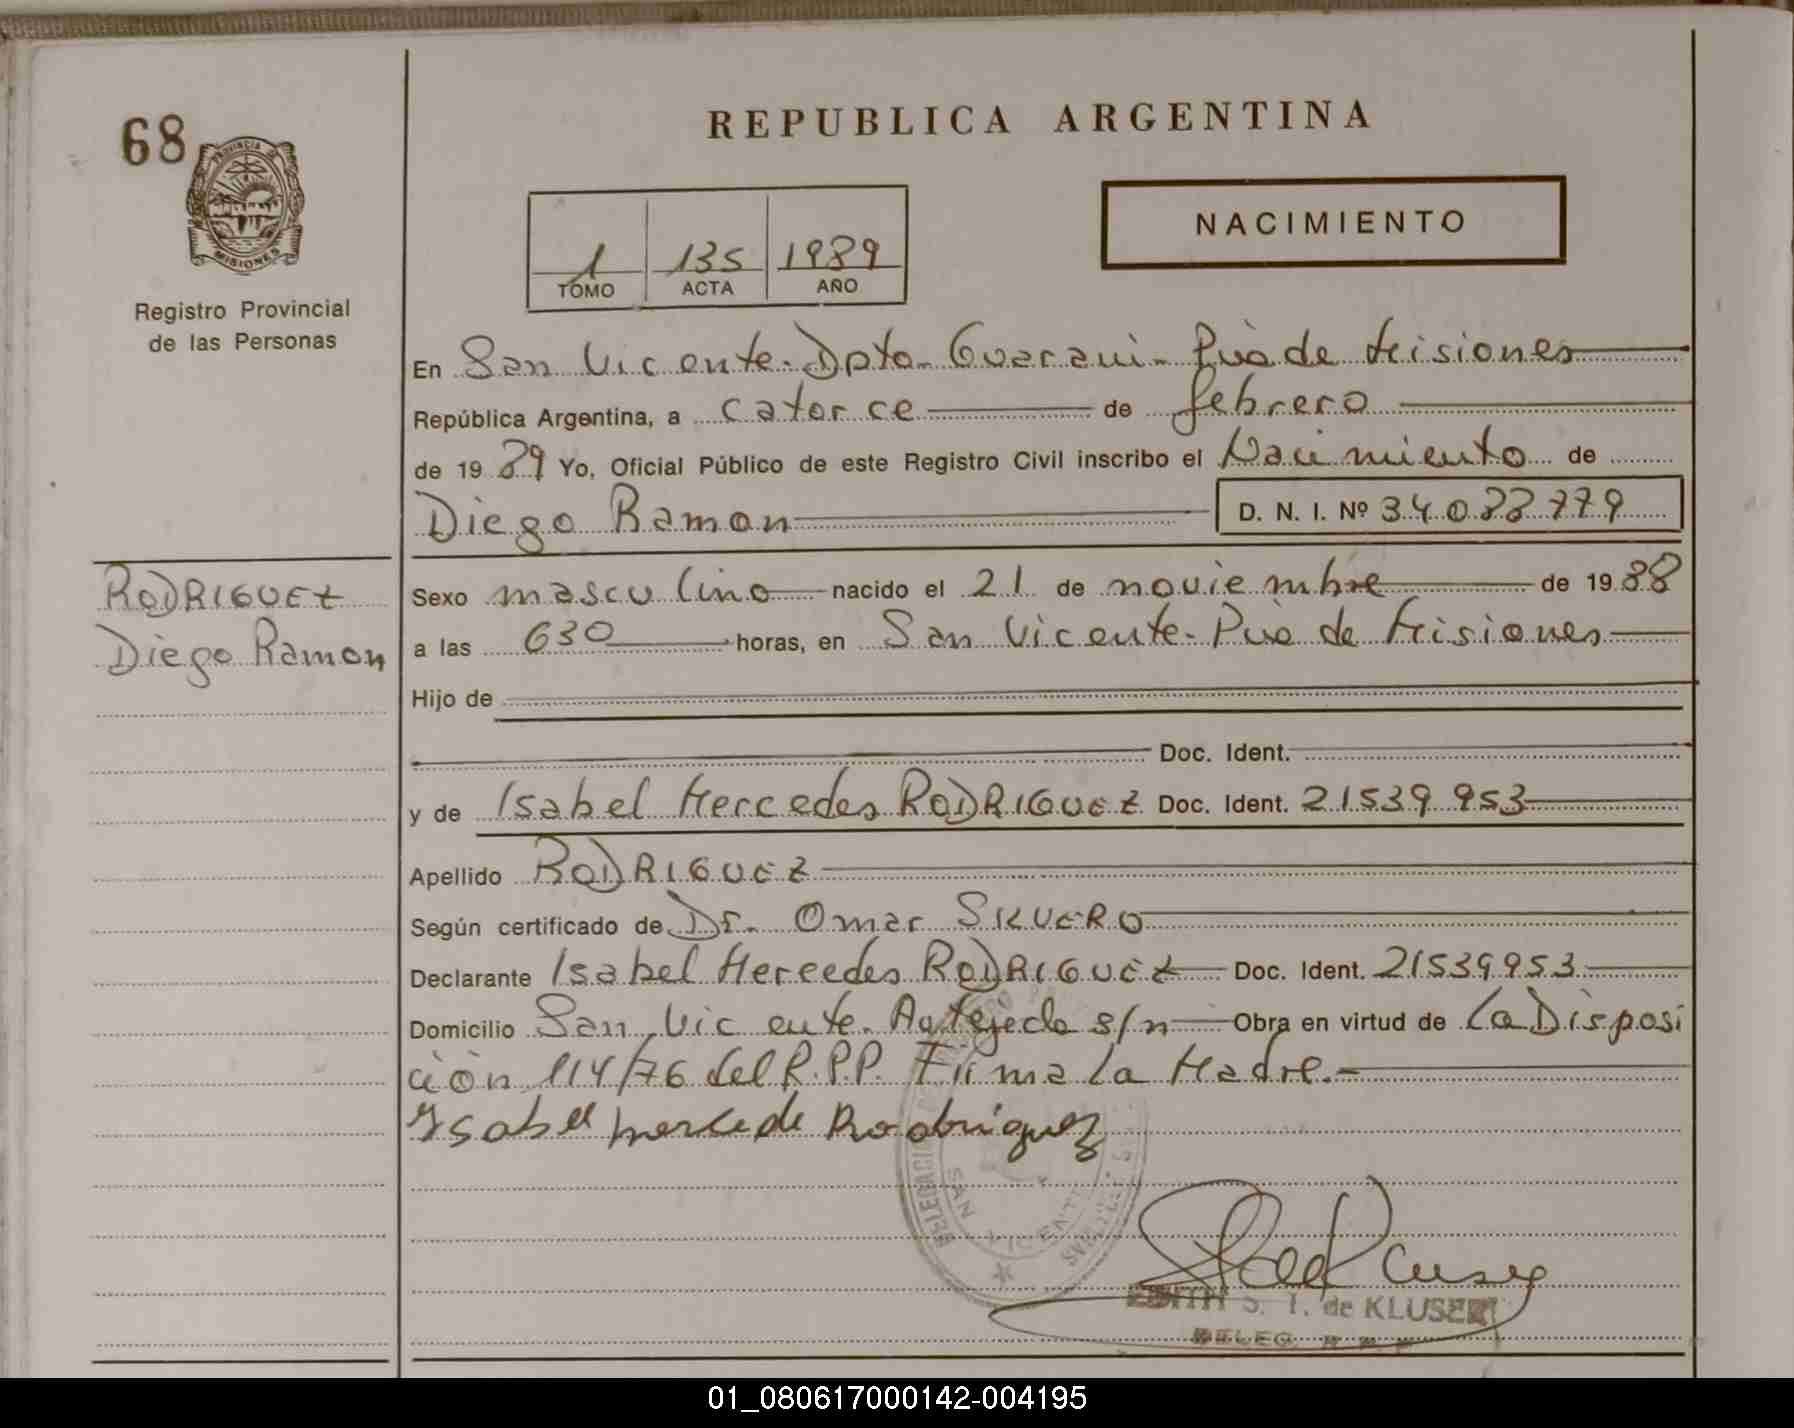 68
PROVINCIA DE
MISIONES
Registro Provincial
de las Personas
REPUBLICA ARGENTINA
1 135 1989
TOMO ACTA AÑO
NACIMIENTO
En San Vicente - Dpto - Guarani - Pcia de Misiones
República Argentina, a catorce de febrero
de 1989 Yo, Oficial Público de este Registro Civil inscribo el Nacimiento de
Diego Ramon D. N. I. Nº 34.088.779
RODRIGUEZ
Diego Ramon
Sexo masculino nacido el 21 de noviembre de 1988
a las 630 horas, en San Vicente - Pcia de Misiones
Hijo de
Doc. Ident.
y de Isabel Mercedes RODRIGUEZ Doc. Ident. 21539953
Apellido RODRIGUEZ
Según certificado de Dr. Omar
Declarante Isabel Mercedes RODRIGUEZ Doc. Ident. 21539953
Domicilio San Vicente. s/n Obra en virtud de La Disposi
ción 114/76 del R.P.P. Firma La Madre.-
Ysabel mercede Rodriguez
DELEGACION
SAN VICENTE
S. T. de KLUSER
DELEG.
01_080617000142-004195